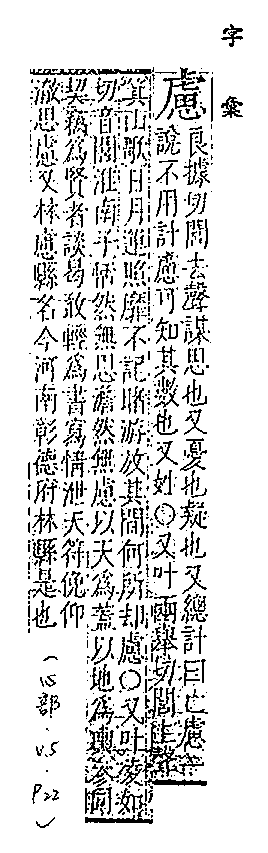 字彙
慮良據切閭去聲謀思也又憂也疑也又總計曰亡慮辛
說不用計慮可知其數也又姓○又叶兩舉切閭上聲
箕山歌日月運照靡不記睹游放其間何所却慮○又叶凌如
切音閭淮南子恬然無思澹然無慮以天為蓋以地為輿參同
契竊為賢者談曷敢輕為書寫情泄天符俛仰
澈思慮又林慮縣名今河南彰德府林縣是也
(心部.V.5.P22)